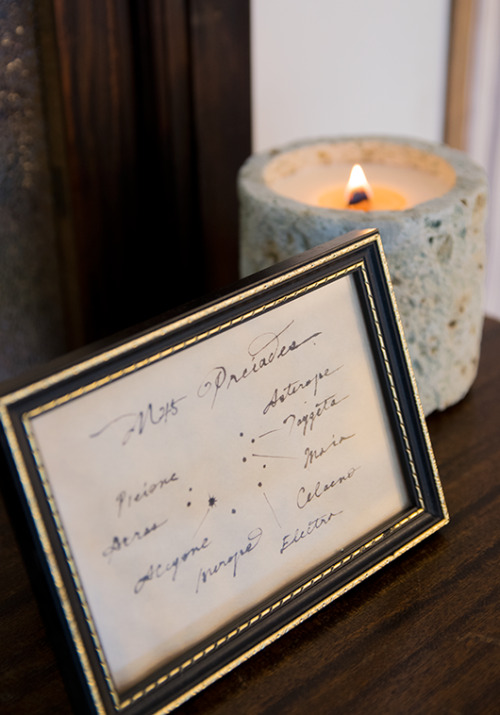 M45 Pleiades.
Asterope
Taygeta
Maia
Pleione
Celaeno
Atlas
Alcyone
Merope
Electra